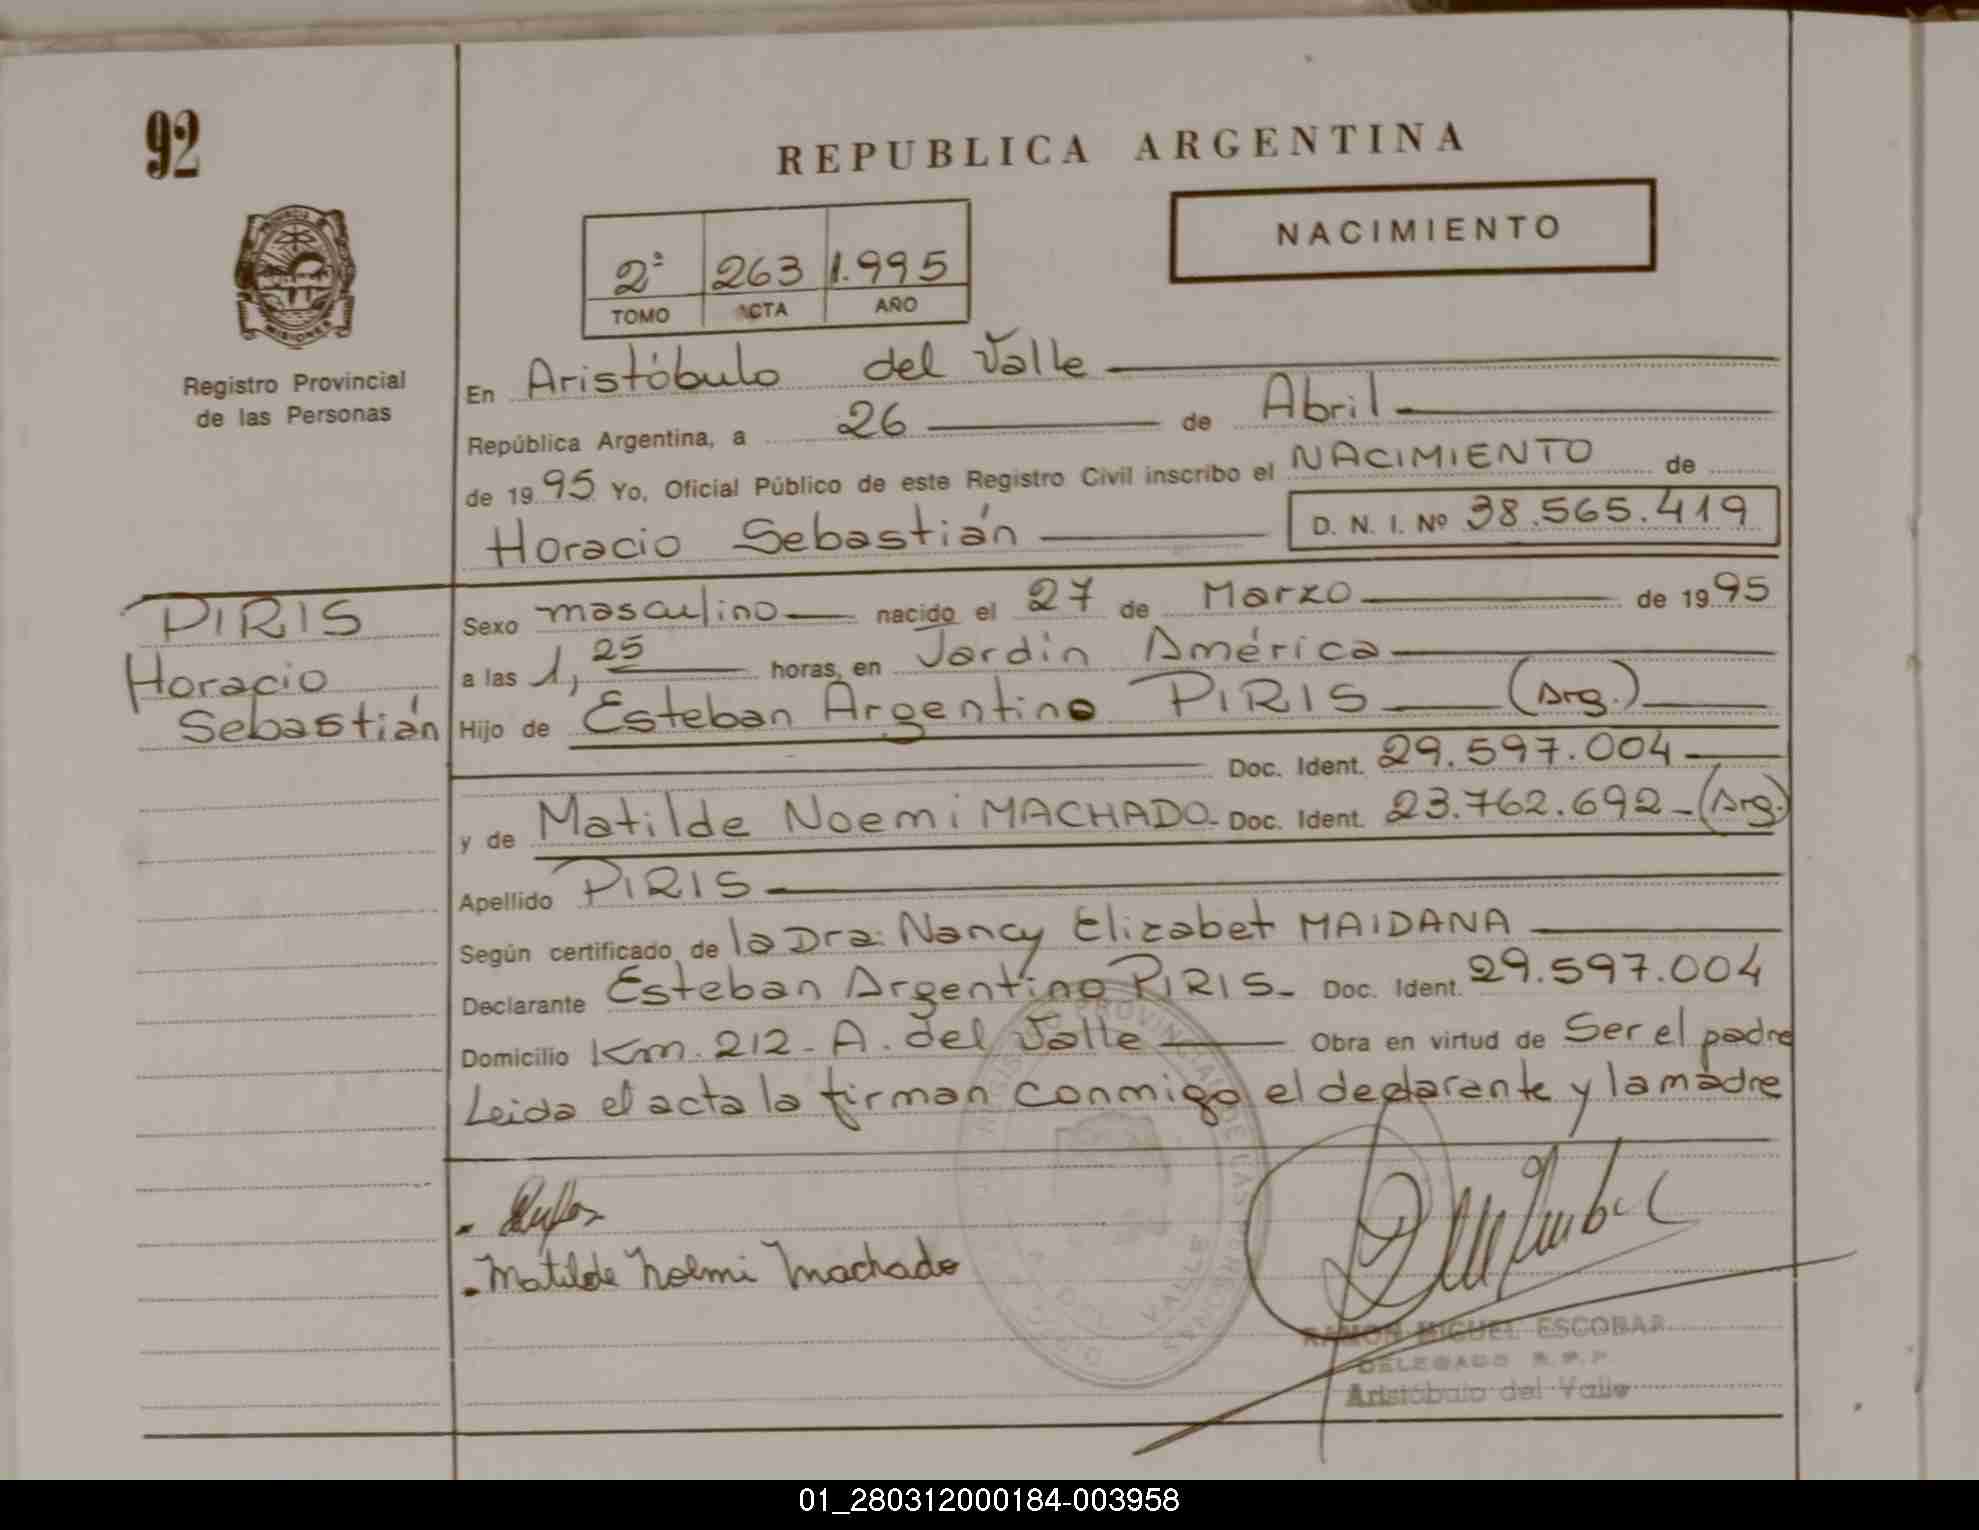 92
REPUBLICA ARGENTINA
NACIMIENTO
2º 263 1.995
TOMO ACTA AÑO
MISIONES
Registro Provincial
de las Personas
En Aristóbulo del Valle
República Argentina, a 26 de Abril
de 1995 Yo, Oficial Público de este Registro Civil inscribo el NACIMIENTO de
Horacio Sebastián D. N. I. Nº 38.565.419
PIRIS
Horacio
Sebastián
Sexo masculino nacido el 27 de Marzo de 1995
a las 1,25 horas, en Jardín América
Hijo de Esteban Argentino PIRIS (Arg.)
Doc. Ident. 29.597.004
y de Matilde Noemi MACHADO- Doc. Ident. 23.762.692-(Arg.)
Apellido PIRIS
Según certificado de la Dra. Nancy Elizabet MAIDANA
Declarante Esteban Argentino PIRIS- Doc. Ident. 29.597.004
Domicilio Km. 212- A. del Valle Obra en virtud de Ser el padre
Leida el acta la firman conmigo el declarante y la madre
- Matilde Noemi Machado
REGISTRO PROVINCIAL DE LAS PERSONAS
VALLE
RAMON MIGUEL ESCOBAR
DELEGADO R.P.P.
Aristóbulo del Valle
01_280312000184-003958